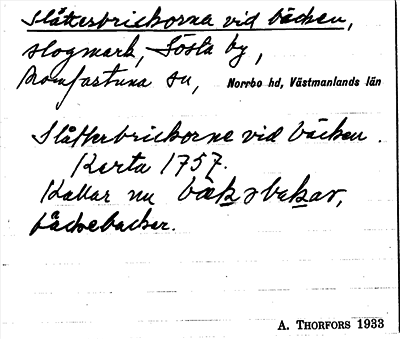 Slåtterbrickorna vid bäcken,
slogmark, Sösta by,
Romfartuna sn, Norrbo hd, Västmanlands län
Slåtterbrickorne vid bäcken.
Karta 1757.
Kallar nu
bäckebacker.
A. THORFORS 1933